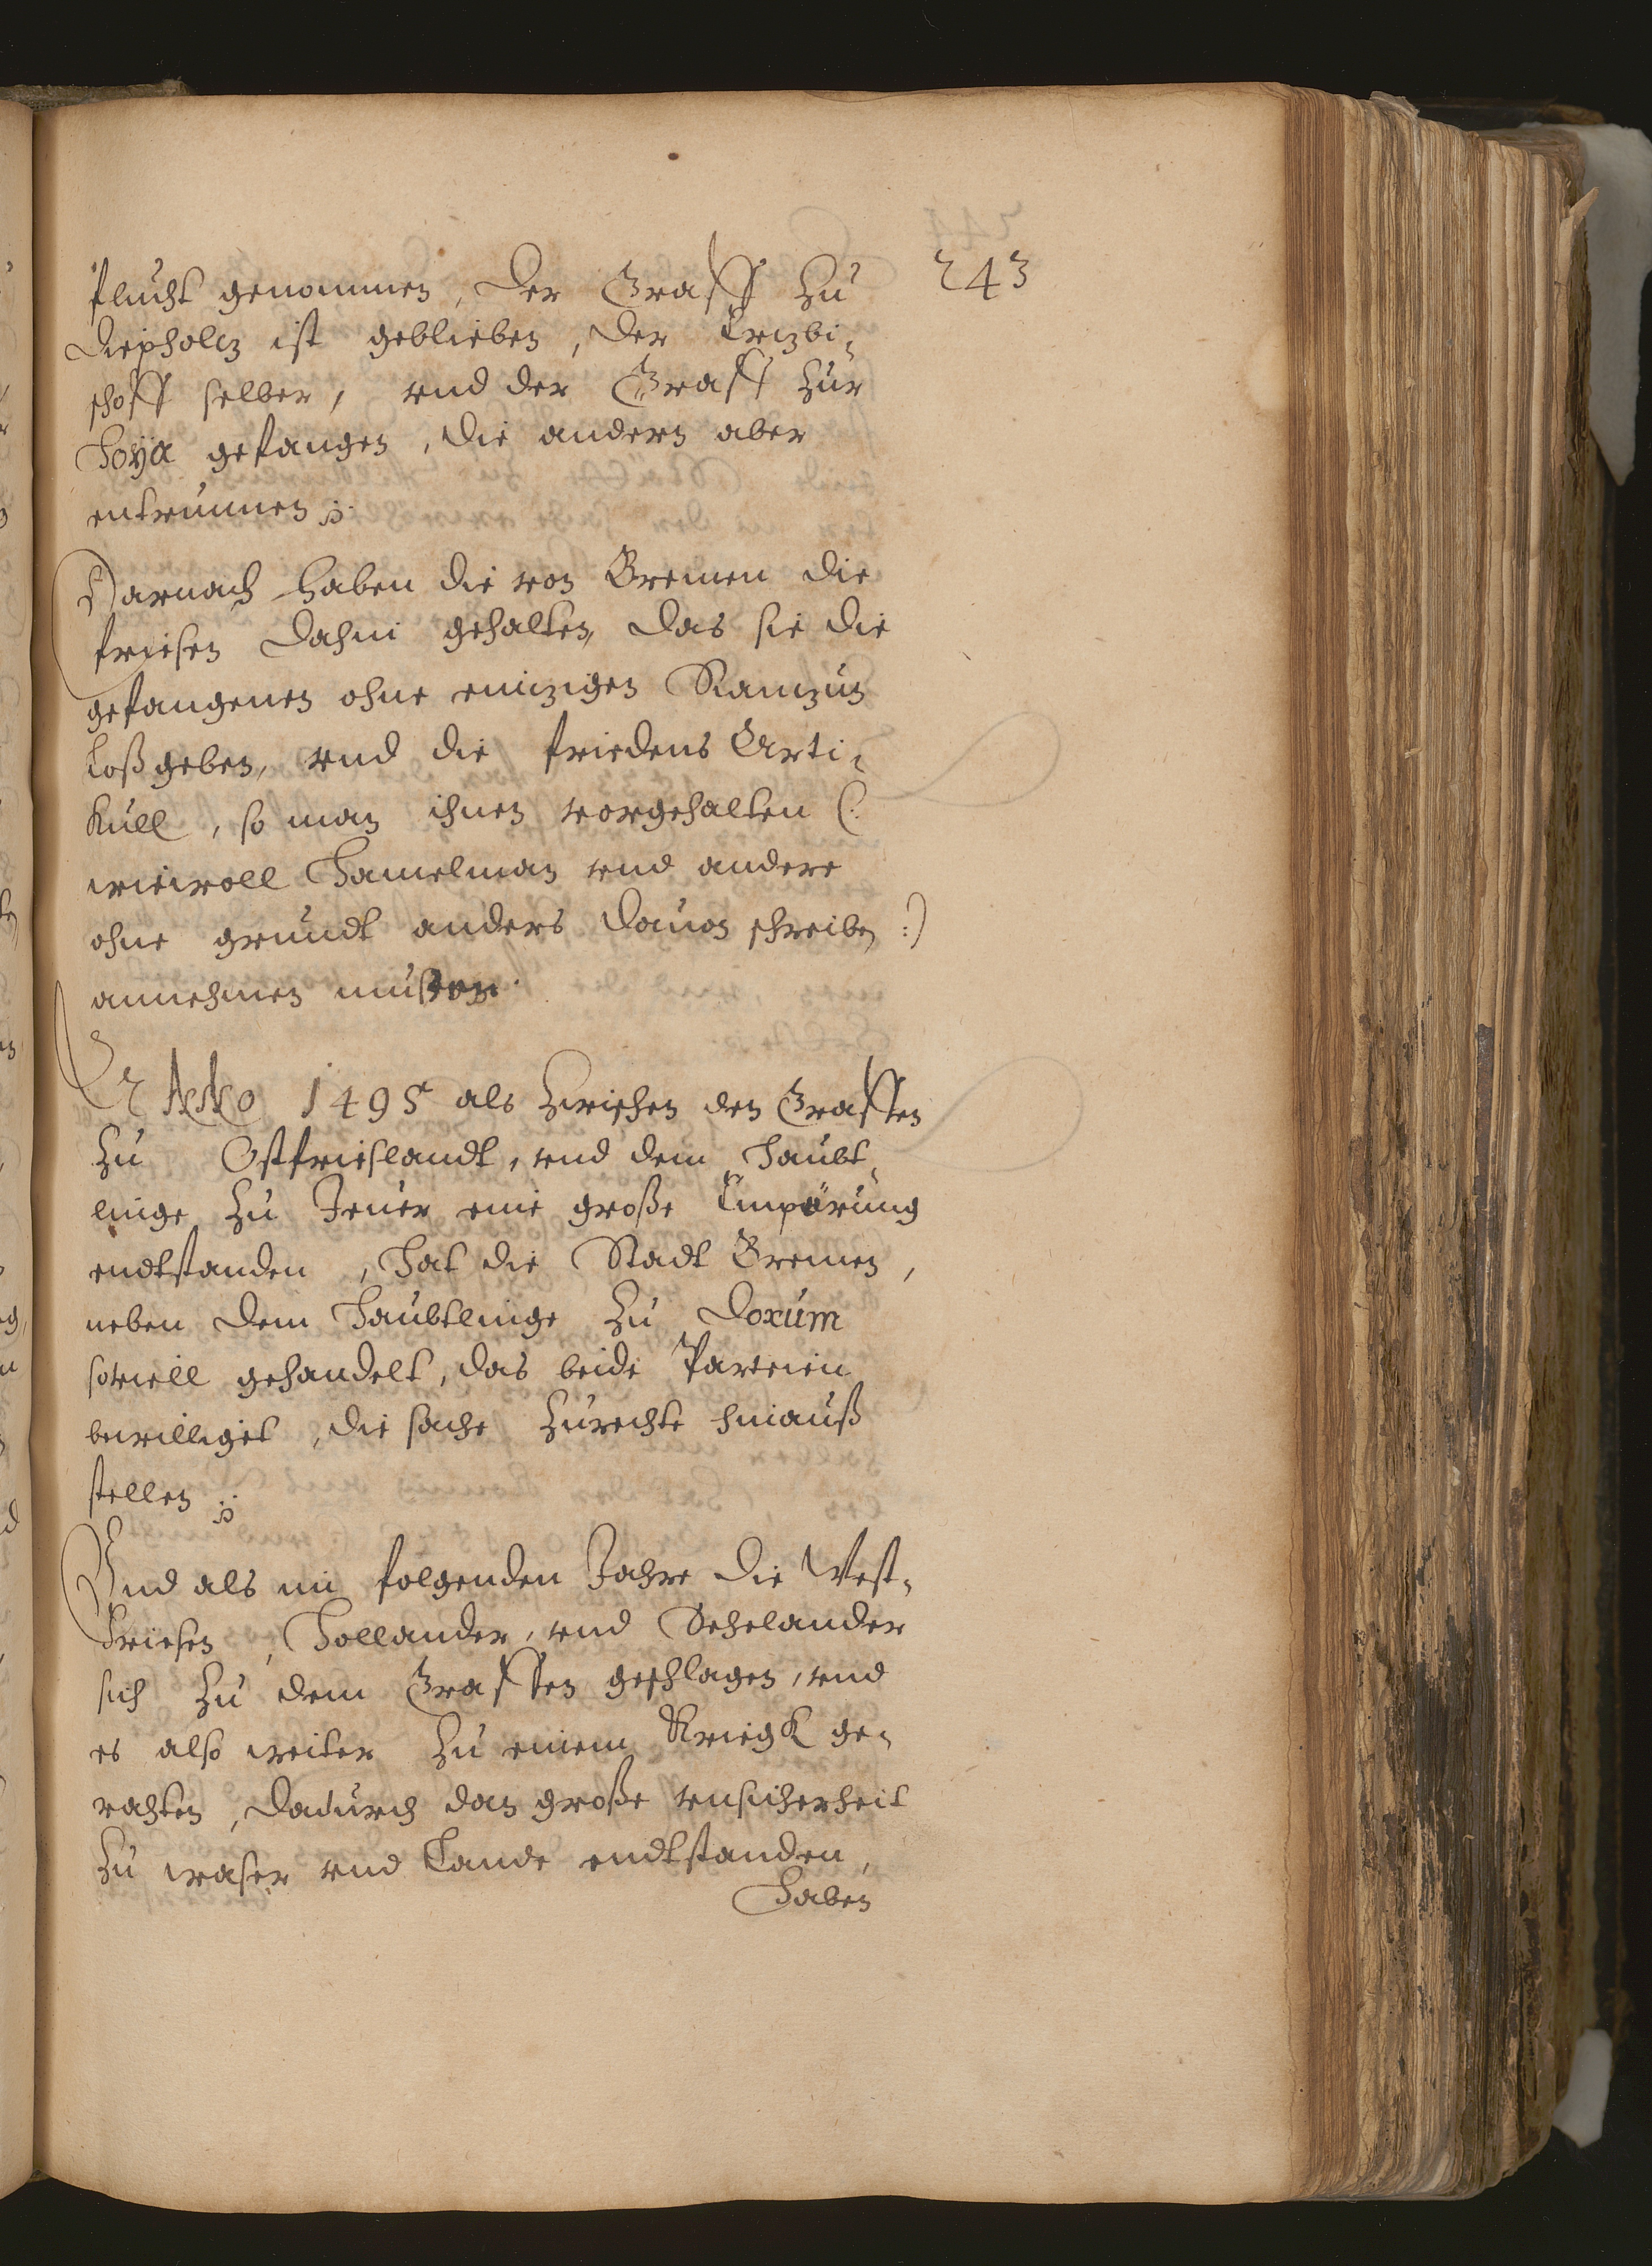 243
flucht genommen, Der Graff zu
Diepholtz ist geblieben, Der Ertzbi„
schoff selber, vnd der Graff zur
Hoÿa gefangen, Die andern aber
entrunnen.
Darnach haben die von Bremen die
friesen dahin gehalten, das sie die
gefangenen ohne eintzigen Rantzun
loßgeben, vnd die friedens Arti„
kull, so man ihnen vorgehalten (:
wiewoll Hamelman vnd andere
ohne grundt anders dauon schreiben :)
annehmen mußen.
ANNo 1495 als zwischen den Graffen
zu Ostfrieslandt, vnd dem Haubt„
linge zu Jeuer eine große Empörung
endtstanden, Hat die Stadt Bremen,
neben dem Haubtlinge zu Dorum
souiell gehandelt, das beide Parteien
bewilliget, die sache zurechte hinauß
stellen
Vnd als im folgenden Jahre die West„
Friesen, Hollander, vnd Sehelander
sich zu dem Graffen geschlagen, vnd
es also weiter zu einem Kriegk ge„
rahten, dadurch dan große vnsicherheit
zu waser vnd Lande endtstanden,
Haben